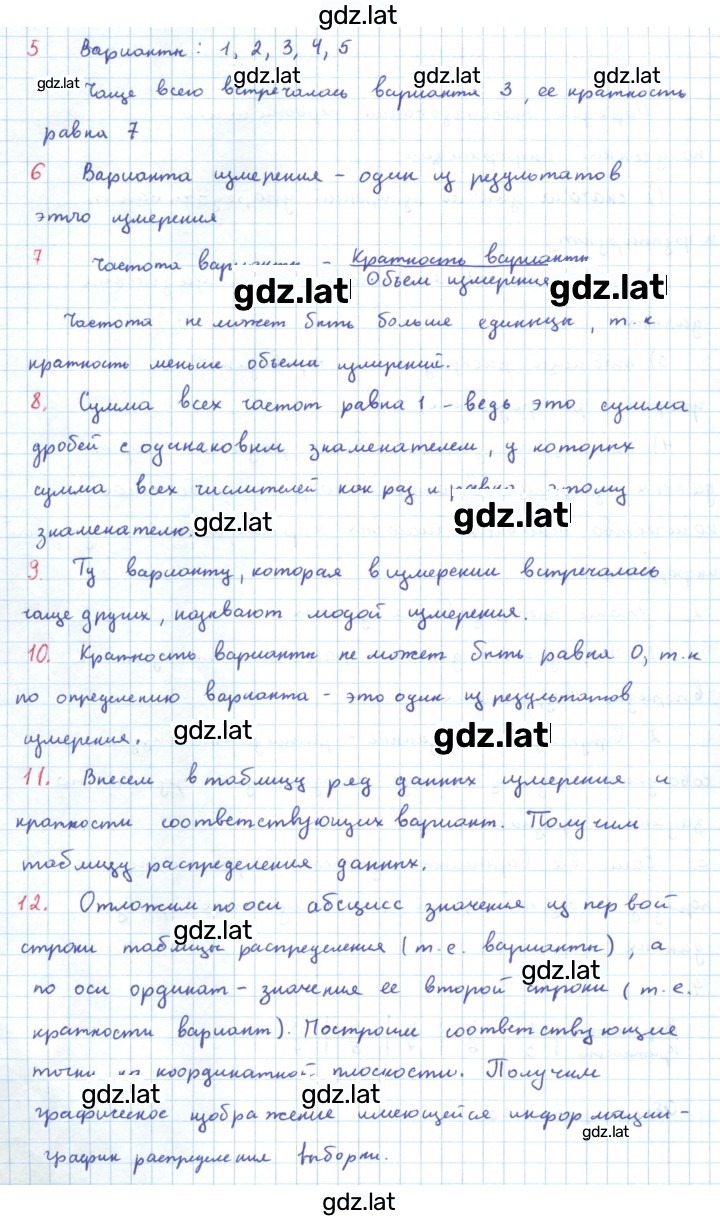 gdz.lat
5 Варианты: 1, 2, 3, 4, 5
gdz.lat gdz.lat gdz.lat gdz.lat
Чаще всего встречалась варианта 3, ее кратность
равна 7
6 Варианта измерения - один из результатов
этого измерения
7 Частота варианты - Кратность варианты
Объем измерения
gdz.lat gdz.lat
Частота не может быть больше единицы, т.к
кратность меньше объема измерений.
8. Сумма всех частот равна 1 - ведь это сумма
дробей с одинаковым знаменателем, у которых
сумма всех числителей как раз и равна этому
gdz.lat
знаменателю. gdz.lat
9 Ту варианту, которая в измерении встречалась
чаще других, называют модой измерения.
10. Кратность варианты не может быть равна 0, т.к
по определению варианта - это один из результатов
измерения. gdz.lat gdz.lat
11. Внесем в таблицу ряд данных измерения и
кратности соответствующих вариант. Получим
таблицу распределения данных.
12. Отложим по оси абсцисс значения из первой
gdz.lat
строки таблицы распределения (т.е. варианты), а
gdz.lat
по оси ординат - значения ее второй строки (т.е.
кратности вариант). Построим соответствующие
точки на координатной плоскости. Получим
gdz.lat gdz.lat
графическое изображение имеющейся информации -
gdz.lat
график распределения выборки.
gdz.lat